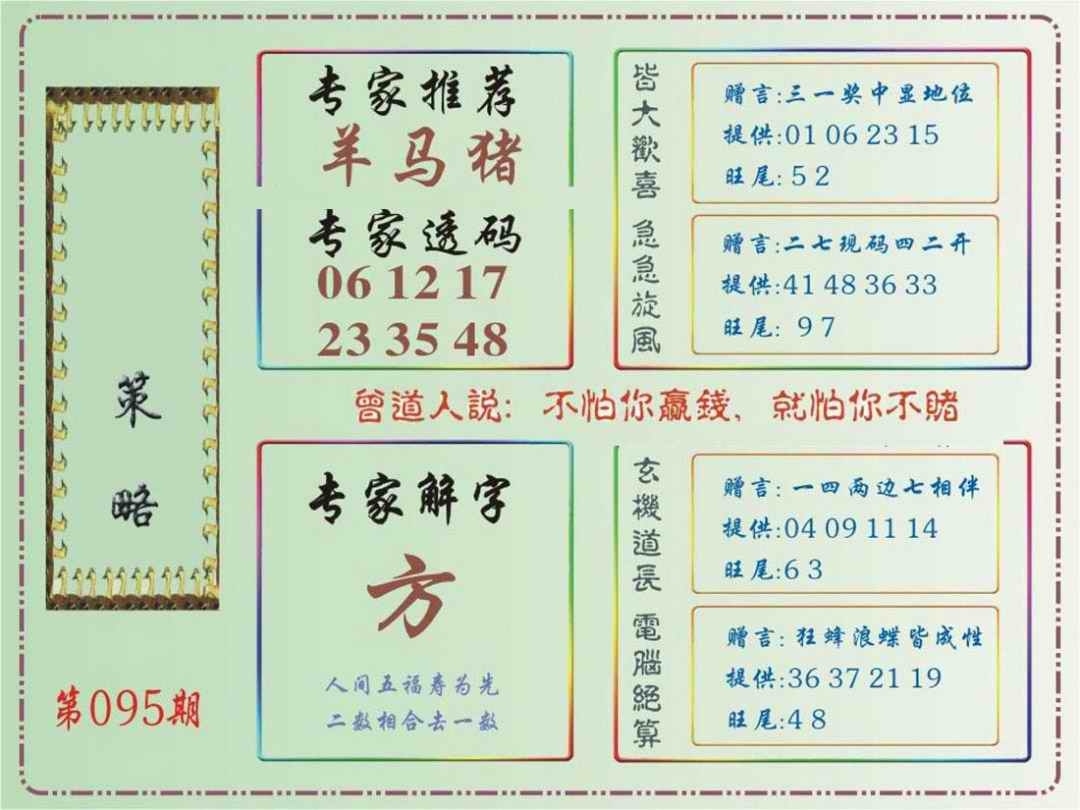 策略
第095期
专家推荐
羊马猪
专家透码
06 12 17
23 35 48
皆大歡喜
赠言:三一奖中显地位
提供:01 06 23 15
旺尾: 5 2
急急旋風
赠言:二七现码四二开
提供:41 48 36 33
旺尾: 9 7
曾道人説: 不怕你贏錢, 就怕你不賭
专家解字
方
人间五福寿为先
二数相合去一数
玄機道長
赠言: 一四两边七相伴
提供:04 09 11 14
旺尾:6 3
電腦絕算
赠言: 狂蜂浪蝶皆成性
提供:36 37 21 19
旺尾:4 8